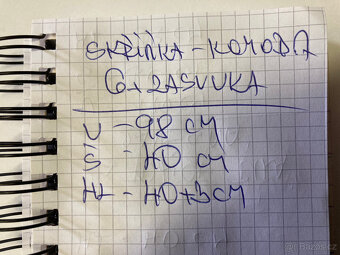 SKŘÍŇKA - KOMODA
6x ZASUVKA
V - 98 CM
Š - 40 CM
HL - 40+3CM